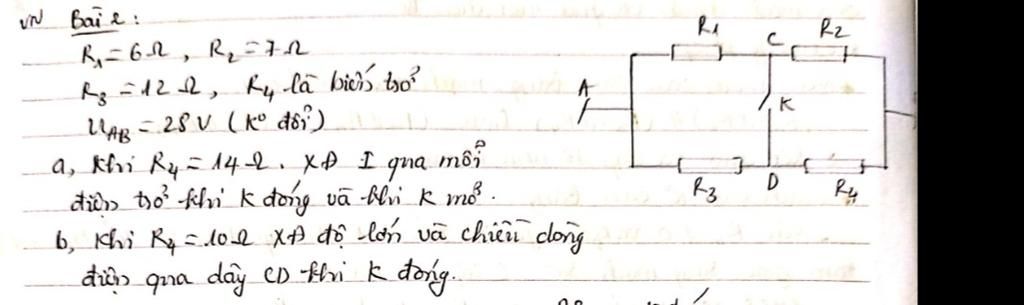 VN Bài 2:
R1 = 6Ω, R2 = 7Ω
R3 = 12Ω, R4 là biến trở
UAB = 28V (k° đổi)
a, khi R4 = 14Ω. XĐ I qua mỗi
điện trở khi K đóng và khi K mở.
b, khi R4 = 10Ω XĐ độ lớn và chiều dòng
điện qua dây CD khi K đóng.
R1
C
R2
A
K
R3
D
R4